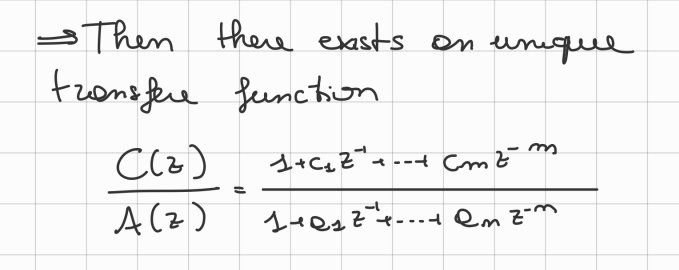 ⇒ Then there exists an unique
transfer function
C(z)/A(z) = (1+c₁z⁻¹+....+ cₙz⁻ⁿ)/(1+a₁z⁻¹+....+ aₙz⁻ⁿ)